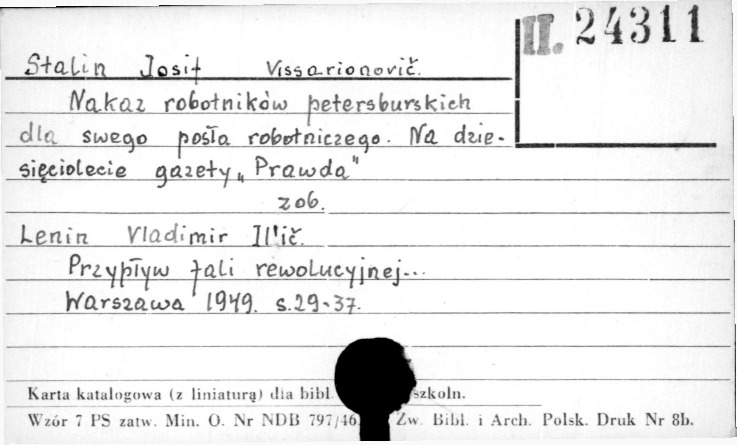 II. 24311
Stalin Josif Vissarionovič.
Nakaz robotników petersburskich
dla swego posła robotniczego. Na dzie-
sięciolecie gazety „Prawda"
zob.
Lenin Vladimir Il'ič.
Przypływ fali rewolucyjnej...
Warszawa 1949. s.29-37.
Karta katalogowa (z liniaturą) dla bibl. szkoln.
Wzór 7 PS zatw. Min. O. Nr NDB 797/46. Zw. Bibl. i Arch. Polsk. Druk Nr 8b.